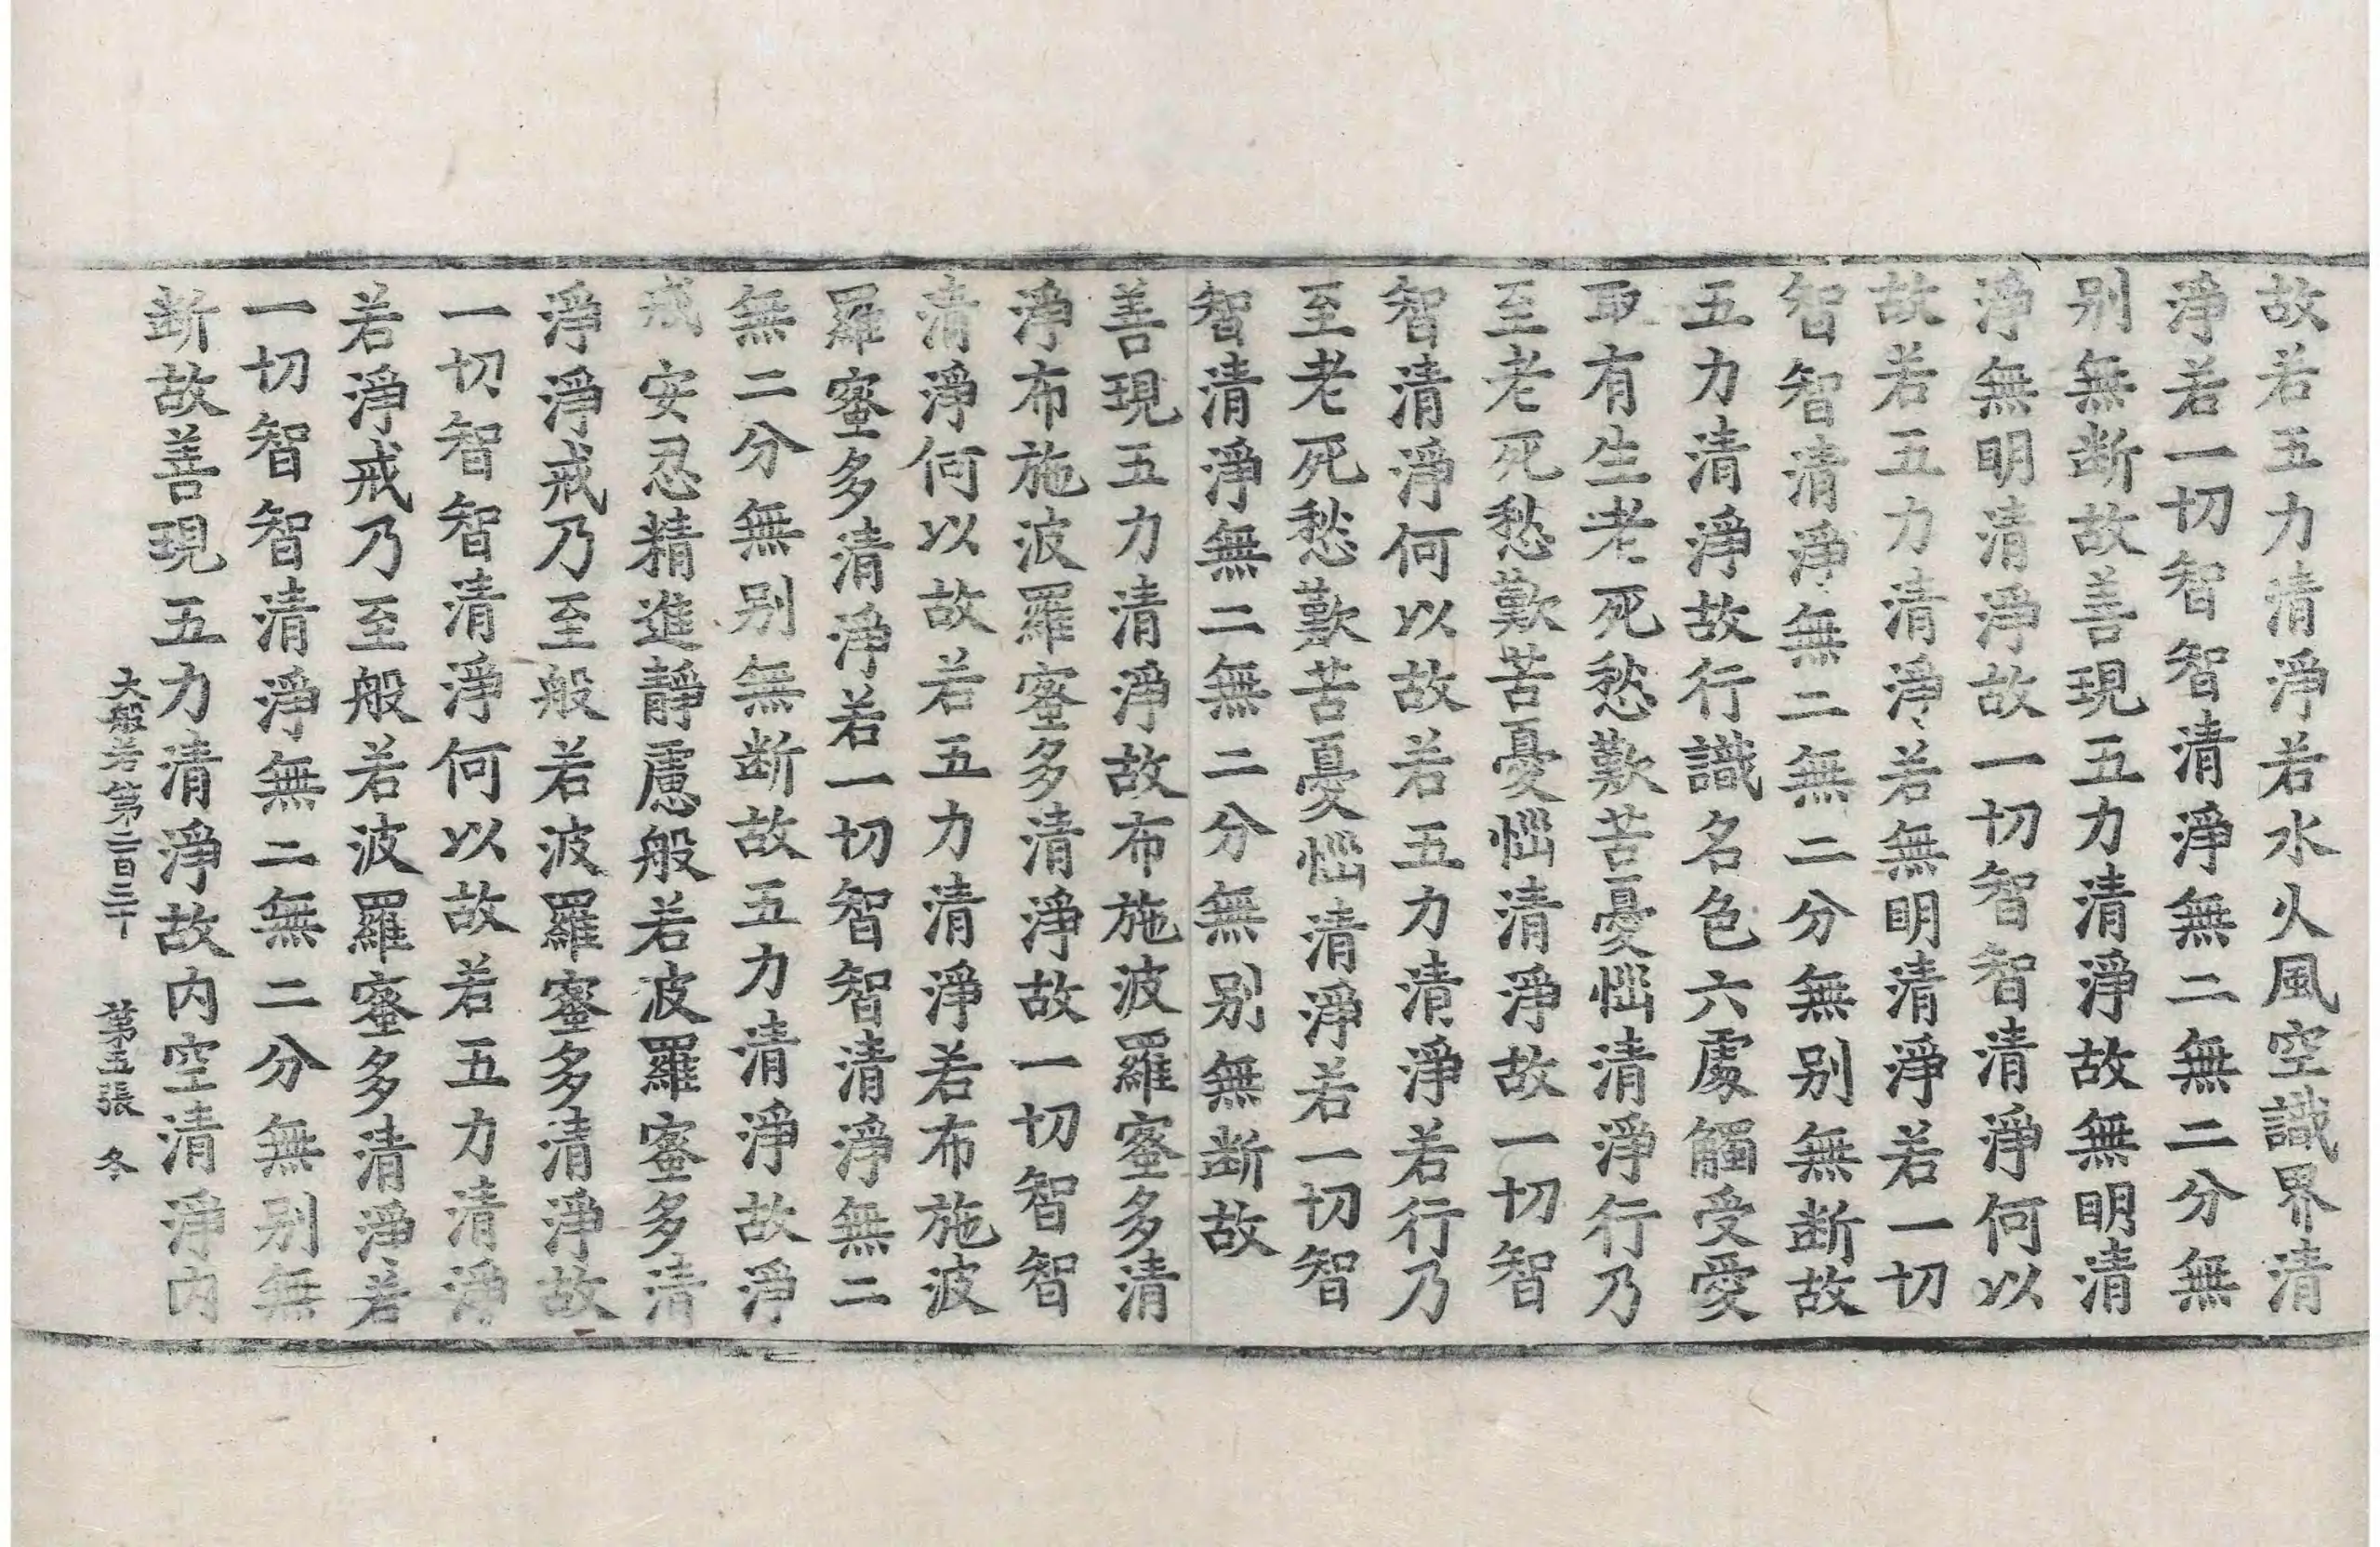 故若五力清淨若水火風空識界清
淨若一切智智清淨無二無二分無
别無断故善現五力清淨故無明清
淨無明清淨故一切智智清淨何以
故若五力清淨若無明清淨若一切
智智清淨無二無二分無别無断故
五力清淨故行識名色六處觸受愛
取有生老死愁歎苦憂惱清淨行乃
至老死愁歎苦憂惱清淨故一切智
智清淨何以故若五力清淨若行乃
至老死愁歎苦憂惱清淨若一切智
智清淨無二無二分無别無断故
善現五力清淨故布施波羅蜜多清
淨布施波羅蜜多清淨故一切智智
清淨何以故若五力清淨若布施波
羅蜜多清淨若一切智智清淨無二
無二分無别無断故五力清淨故淨
戒安忍精進靜慮般若波羅蜜多清
淨淨戒乃至般若波羅蜜多清淨故
一切智智清淨何以故若五力清淨
若淨戒乃至般若波羅蜜多清淨若
一切智智清淨無二無二分無别無
断故善現五力清淨故内空清淨内
大般若第二百三十 第五張 冬